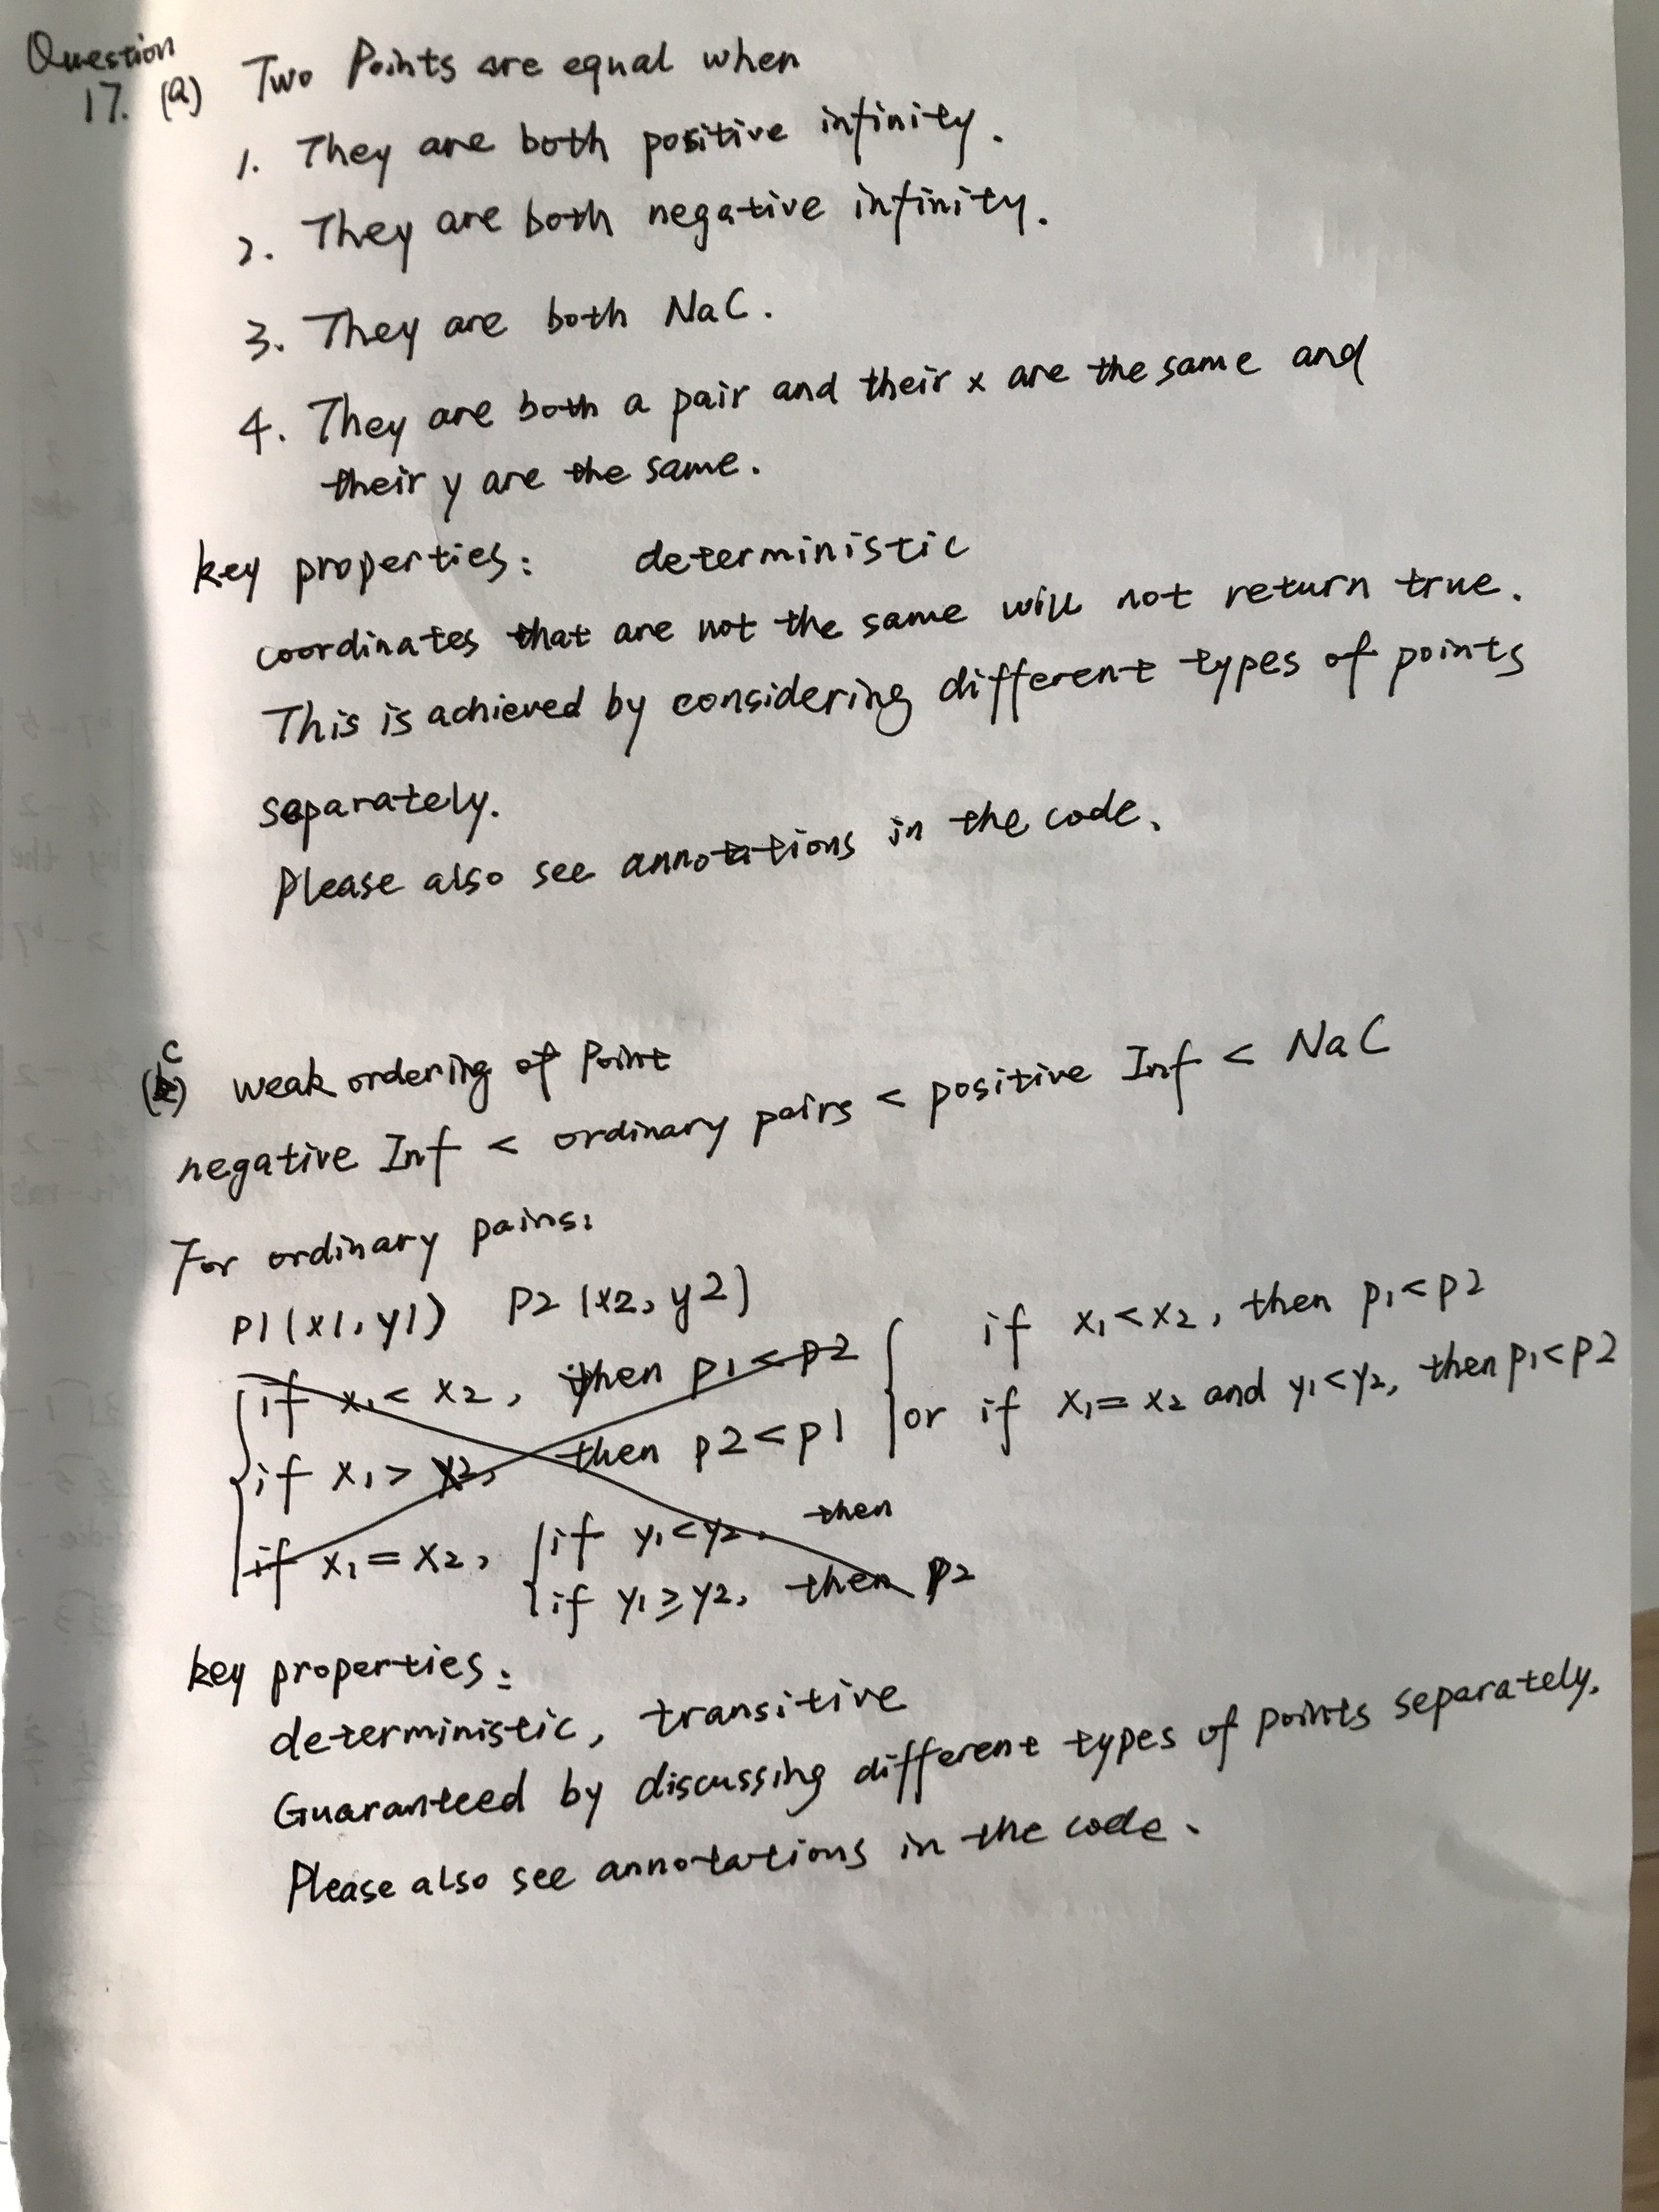 Question
17. (a) Two Points are equal when
1. They are both positive infinity.
2. They are both negative infinity.
3. They are both NaC.
4. They are both a pair and their x are the same and
their y are the same.
key properties: deterministic
coordinates that are not the same will not return true.
This is achieved by considering different types of points
separately.
Please also see annotations in the code.
(c) weak ordering of Point
negative Inf < ordinary pairs < positive Inf < NaC
For ordinary pairs:
P1(x1, y1) P2(x2, y2)
if x1 < x2, then p1 < p2
if x1 > x2, then p2 < p1
if x1 = x2, if y1 < y2, then
if y1 ≥ y2, then p2
if x1 < x2, then p1 < p2
or if x1 = x2 and y1 < y2, then p1 < p2
key properties:
deterministic, transitive
Guaranteed by discussing different types of points separately.
Please also see annotations in the code.